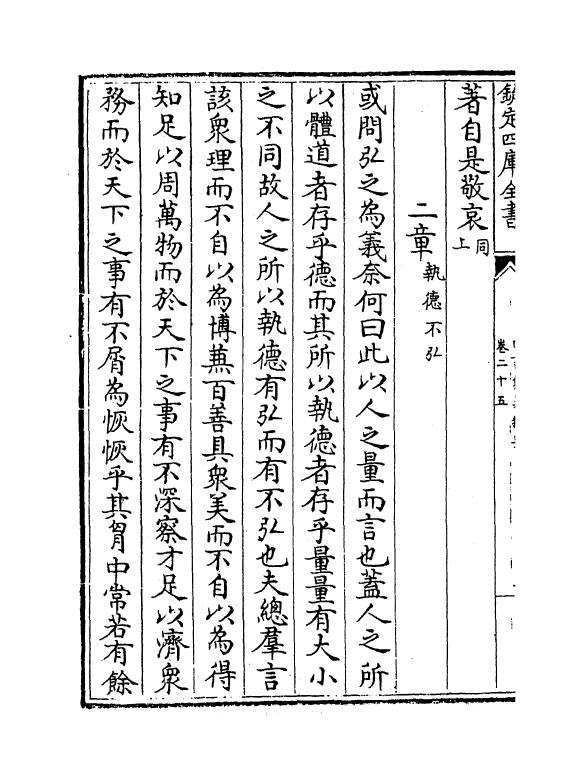 欽定四庫全書
卷二十五
著自是敬哀同上
二章執德不弘
或問弘之為義奈何曰此以人之量而言也蓋人之所
以體道者存乎德而其所以執德者存乎量量有大小
之不同故人之所以執德有弘而有不弘也夫總羣言
該衆理而不自以為博兼百善具衆美而不自以為得
知足以周萬物而於天下之事有不深察才足以濟衆
務而於天下之事有不屑為恢恢乎其胷中常若有餘